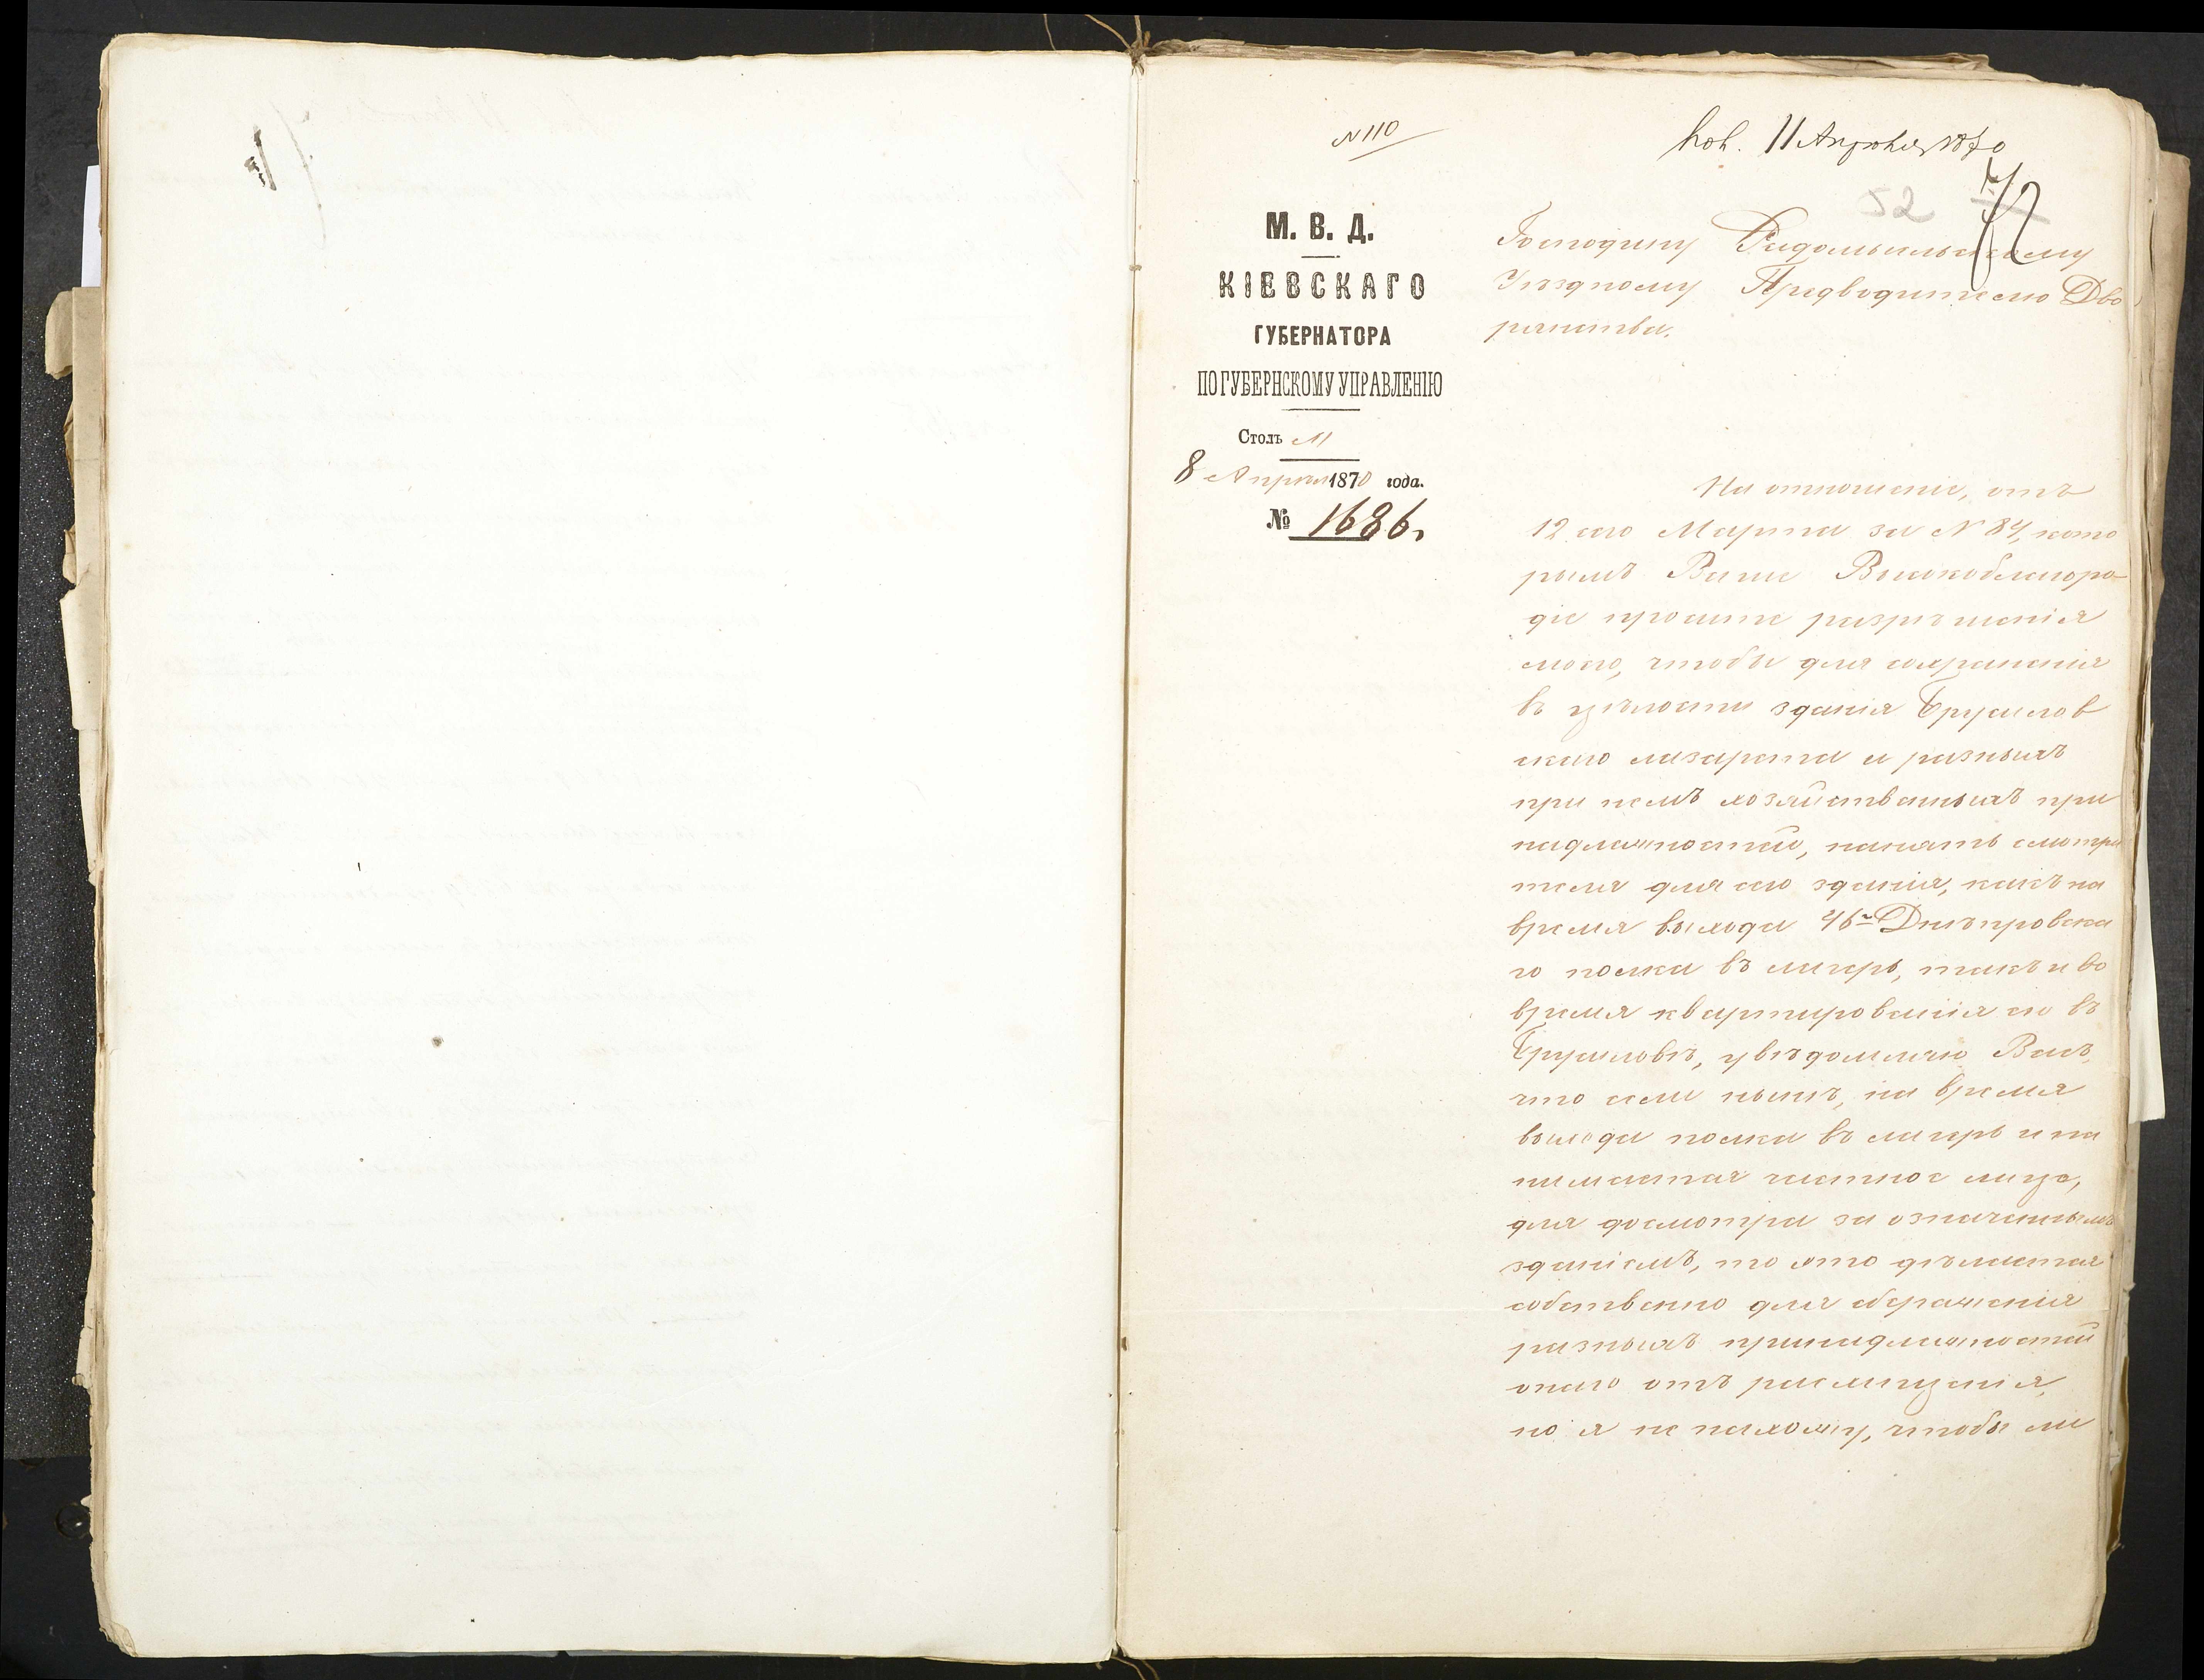 № 110
11 Апрѣля 1870
52
М. В. Д.
КІЕВСКАГО
ГУБЕРНАТОРА
ПО ГУБЕРНСКОМУ УПРАВЛЕНІЮ
Столъ
8 Апрѣля 1870 года.
№ 1686.
Господину Радомысльскому
Уѣздному Предводителю Дво
рянства.
На отношеніе, отъ
12 сего Марта за № 84, кото
рымъ Ваше Высокоблагоро-
діе просите разрѣшенія
моего, чтобы для сохраненія
въ цѣлости зданія Брусилов
скаго лазарета и разныхъ
при немъ хозяйственныхъ при
надлежностей, нанять смотри
теля для сего зданія, какъ на
время выхода 46го Днѣпровска
го полка въ лагерь, такъ и во
время квартированія его въ
Брусиловѣ, увѣдомляю Васъ,
что если нынѣ, на время
выхода полка въ лагерь и на
нимается частное лицо,
для досмотра за означеннымъ
зданіемъ, то это дѣлается
собственно для сбереженія
разныхъ принадлежностей
онаго отъ расхищенія,
но я не нахожу, чтобы ли